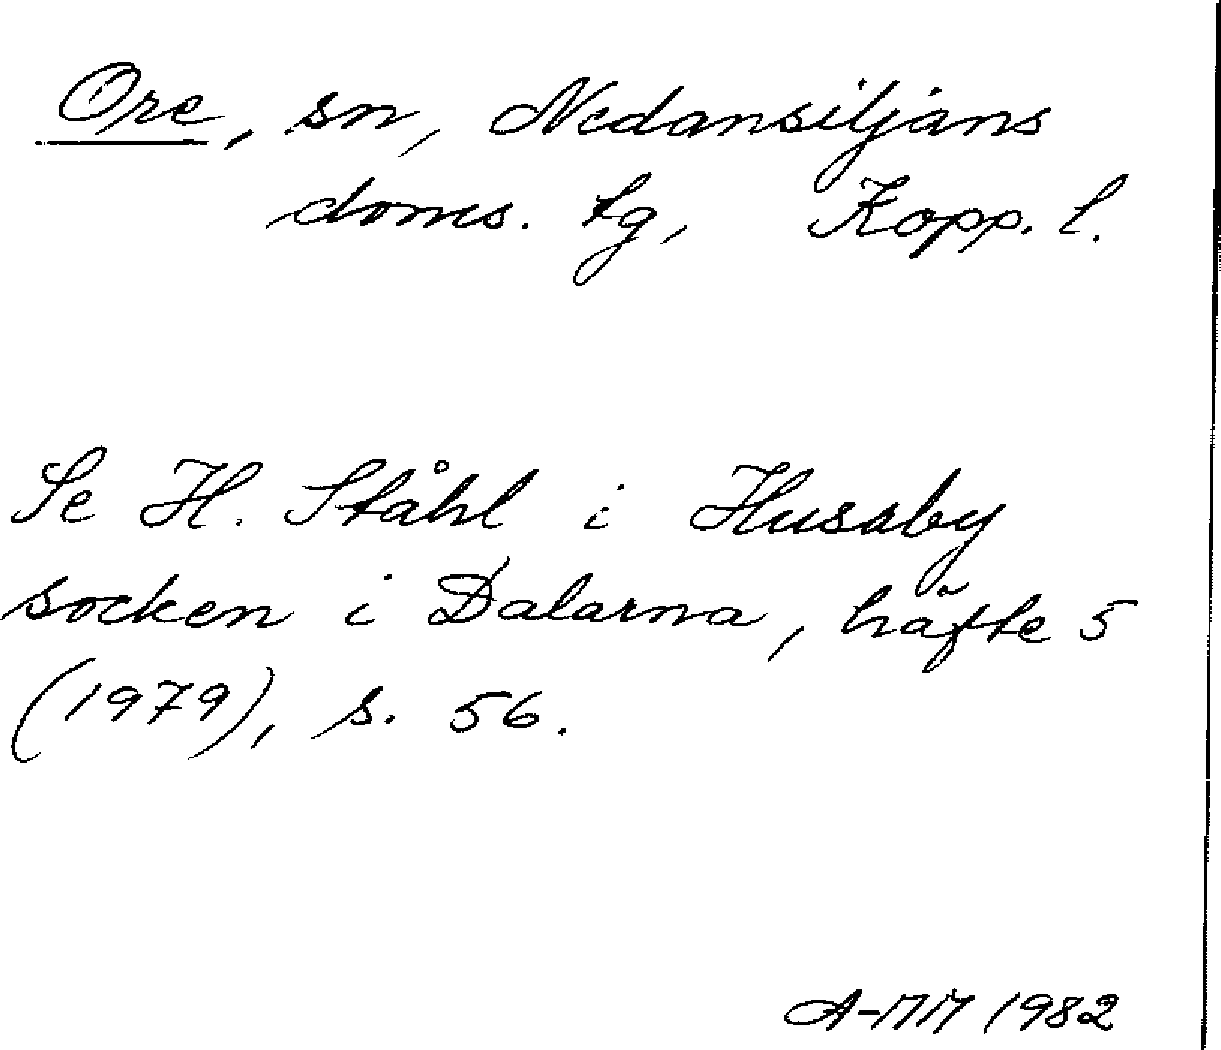 Ore, sn, Nedansiljans
doms. tg, Kopp. l.
Se H. Ståhl i Hussby
socken i Dalarna, häfte 5
(1979), s. 56.
A-MM 1982